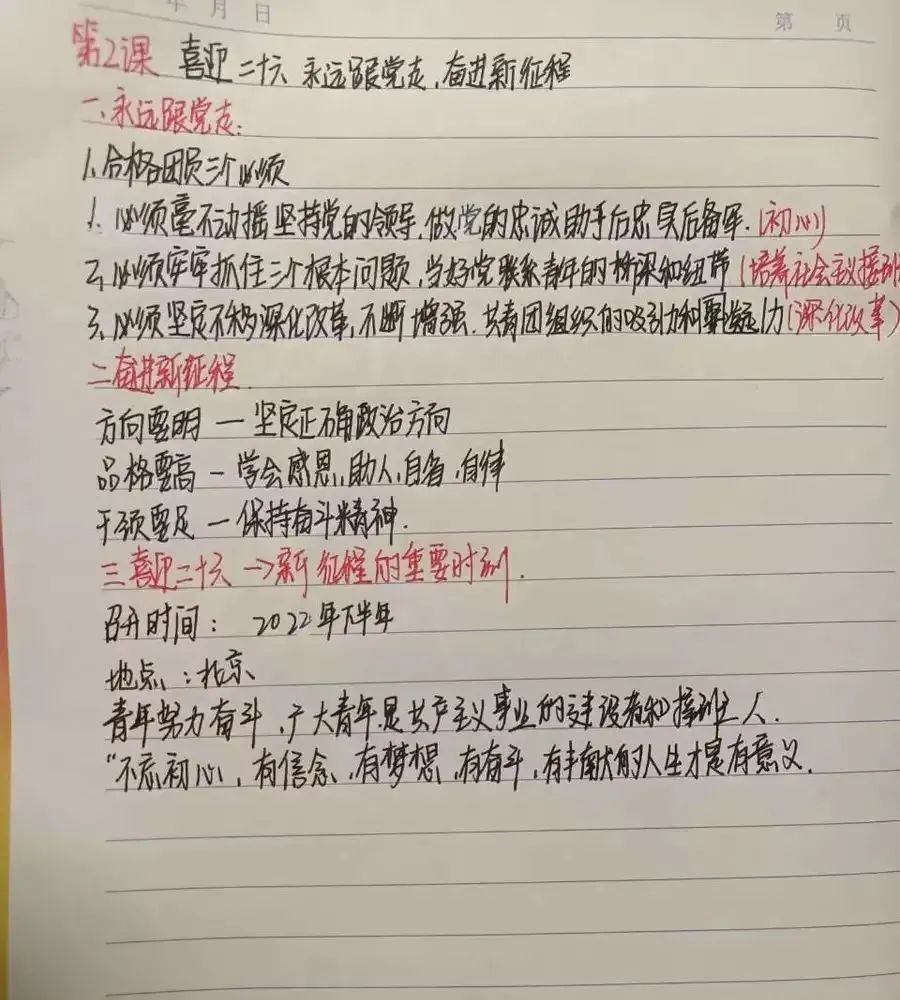 年 月 日
第 页
第2课 喜迎二十六 永远跟党走,奋进新征程
一、永远跟党走:
1、合格团员三个必须
1. 必须毫不动摇坚持党的领导,做党的忠诚助手后忠具后备军.(初心)
2、必须牢牢抓住三个根本问题,当好党联系青年的桥梁和纽带(培养社会主义接班
3、必须坚定不移深化改革,不断增强.共青团组织的吸引力和凝力(深化改革)
二奋进新征程.
方向要明 — 坚定正确政治方向
品格要高 — 学会感恩,助人,自省,自律
干颈要足 — 保持奋斗精神.
三喜迎二十六 →新征程的重要时刻.
召开时间: 2022年下半年
地点:北京
青年努力奋斗,广大青年是共产主义事业的建设者和接班人.
“不忘初心,有信念,有梦想,有奋斗,有奉献的人生才是有意义.